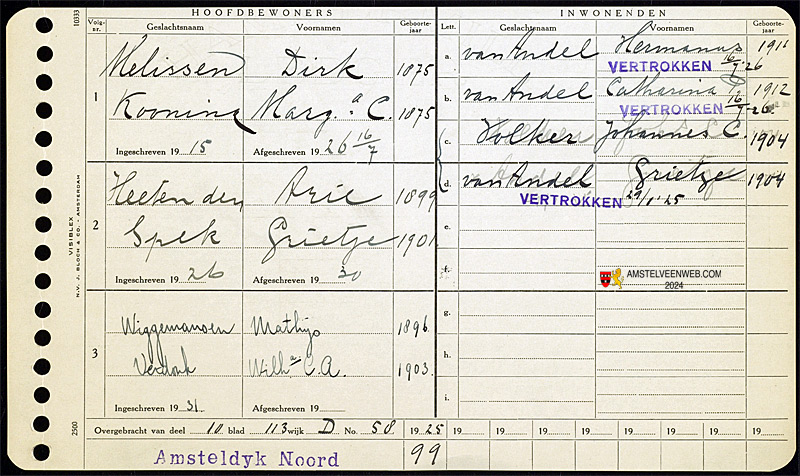 10333
HOOFDBEWONERS
INWONENDEN
Volg-nr.
Geslachtsnaam
Voornamen
Geboorte-jaar
Lett.
Geslachtsnaam
Voornamen
Geboorte-jaar
1
Melissen Dirk 1875
Kooning Marg.a C. 1875
Ingeschreven 19 15 Afgeschreven 19 26 16/7
2
Heeten den Arie 1899
Spek Grietje 1901
Ingeschreven 19 26 Afgeschreven 19 30
3
Wiggemansen Mathijs 1896
Verdonk Wilha C.A. 1903
Ingeschreven 19 31 Afgeschreven 19
a. van Andel Hermanus 1911
VERTROKKEN 16/7 '26
b. van Andel Catharina 1912
VERTROKKEN 16/7-26.
c. Volker Johannes C. 1904
d. van Andel Grietje 1904
VERTROKKEN 29/1 '25
e.
f.
AMSTELVEENWEB.COM
2024
g.
h.
i.
VISIBLEX
N.V. J. BLOCH & CO. - AMSTERDAM
2500
Overgebracht van deel 10 blad 113 wijk D No. 58 19 25 19 19 19 19 19 19 19
Amsteldyk Noord 99